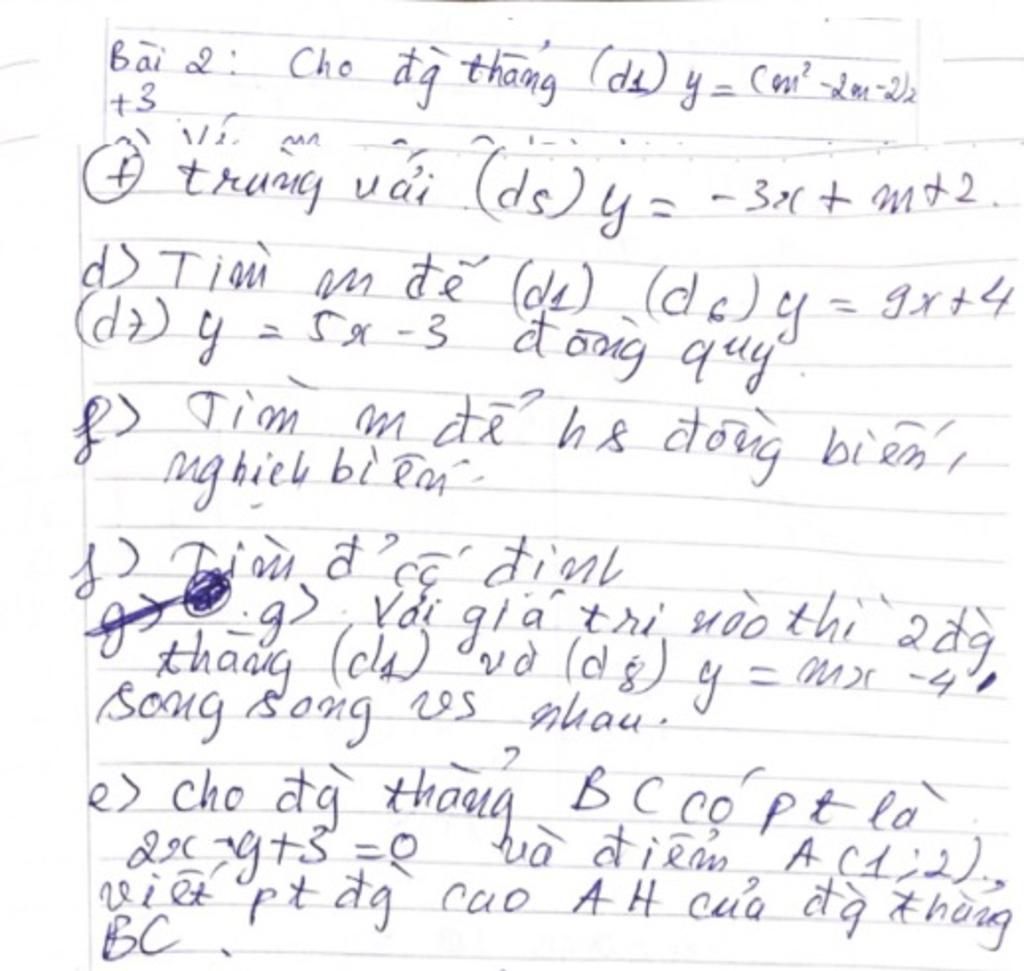 Bài 2: Cho đg thẳng (d1) y = (m² -2m-2)x
+3
+ trùng vái (d5) y = -3x + m+2.
d> Tìm m để (d1) (d6) y = 9x+4
(d7) y = 5x -3 đồng quy.
f> Tìm m để hs đồng biến,
nghịch biến.
f> Tìm đ' cố định
g> Với giá trị nào thì 2 đg
thẳng (d1) và (d8) y = mx -4.
song song vs nhau.
e> cho đg thẳng BC có pt là
2x-y+3=0 và điểm A(1;2).
viết pt đg cao AH của đg thẳng
BC.